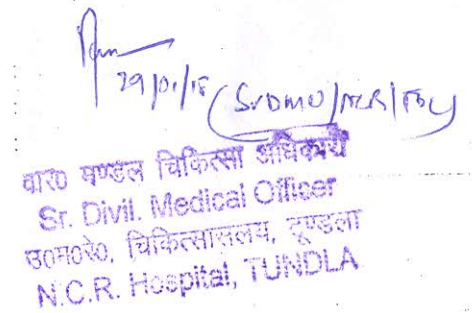 29/01/18
(SrDMO/NCR/TDL)
वा०० मण्डल चिकित्सा अधिकारी
Sr. Divil. Medical Officer
उ०म०रे०, चिकित्साललय, टूण्डला
N.C.R. Hospital, TUNDLA